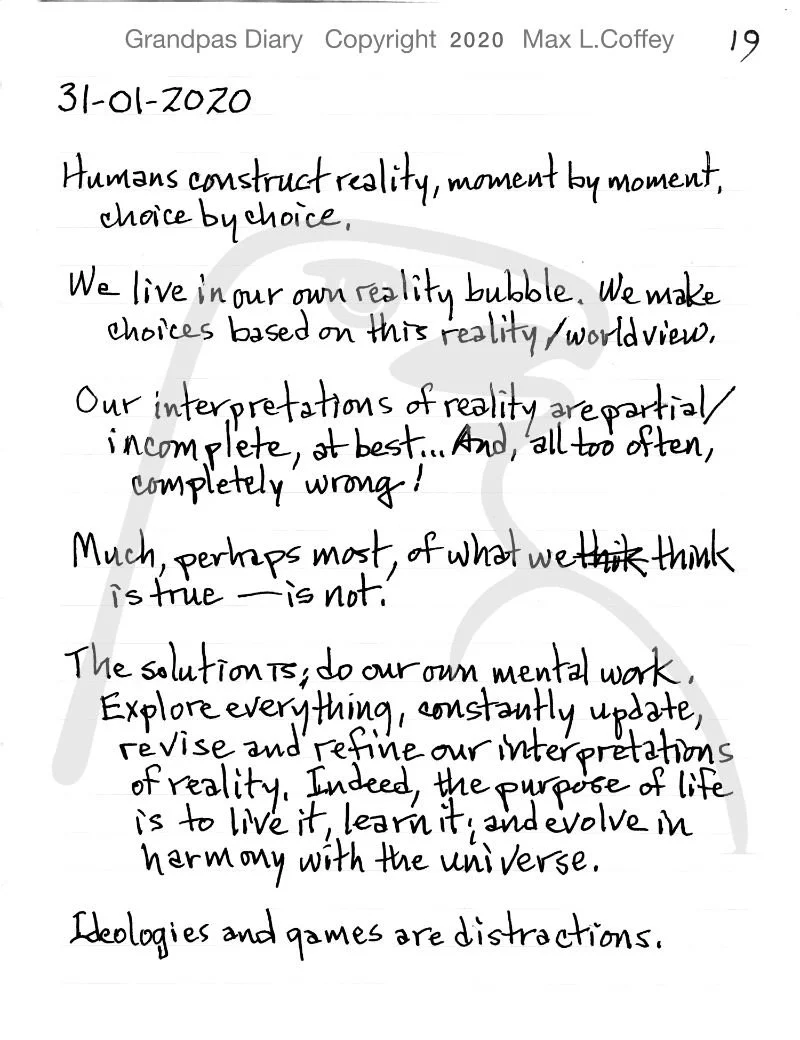 Grandpas Diary Copyright 2020 Max L.Coffey 19
31-01-2020
Humans construct reality, moment by moment,
choice by choice.
We live in our own reality bubble. We make
choices based on this reality/worldview.
Our interpretations of reality are partial/
incomplete, at best... And, all too often,
completely wrong!
Much, perhaps most, of what we thik think
is true — is not.
The solution is; do our own mental work.
Explore everything, constantly update,
revise and refine our interpretations
of reality. Indeed, the purpose of life
is to live it, learn it; and evolve in
harmony with the universe.
Ideologies and games are distractions.